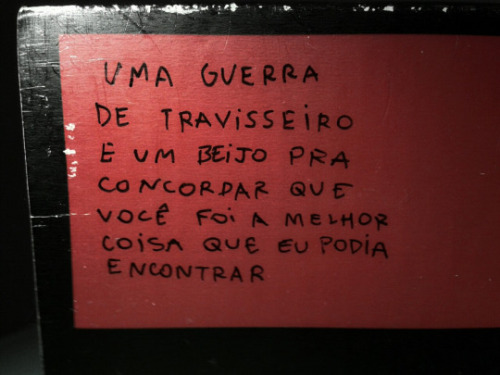 UMA GUERRA
DE TRAVISSEIRO
E UM BEIJO PRA
CONCORDAR QUE
VOCÊ FOI A MELHOR
COISA QUE EU PODIA
ENCONTRAR